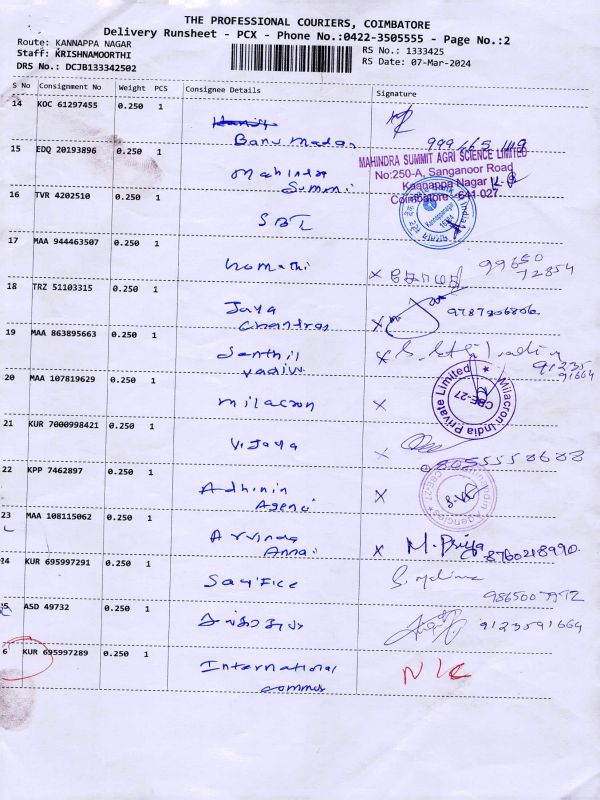 THE PROFESSIONAL COURIERS, COIMBATORE
Delivery Runsheet - PCX - Phone No.:0422-3505555 - Page No.:2
Route: KANNAPPA NAGAR
Staff: KRISHNAMOORTHI
DRS No.: DCJB133342502
RS No.: 1333425
RS Date: 07-Mar-2024
S No Consignment No Weight PCS Consignee Details Signature
14 KOC 61297455 0.250 1
15 EDQ 20193896 0.250 1 Mahindra
MAHINDRA SUMMIT AGRI SCIENCE LIMITED
No:250-A, Sanganoor Road
Kaanappa Nagar
Coimbatore - 641 027.
16 TVR 4202510 0.250 1 SBI
17 MAA 944463507 0.250 1 Komathi
கோமதி 99650
72854
18 TRZ 51103315 0.250 1 Jaya
Chandran 9787206806.
19 MAA 863895663 0.250 1 Senthil
Vadivu 91235
91664
20 MAA 107819629 0.250 1 Milacron
Milacron India Private Limited
CBE-27
21 KUR 7000998421 0.250 1 Vijaya
22 KPP 7462897 0.250 1 Adhinin
Agenci
CBE-27
23 MAA 108115062 0.250 1 Arvinda
Annai M. Priya 8760218990.
24 KUR 695997291 0.250 1 Sacrifice
25 ASD 49732 0.250 1
9123591664
6 KUR 695997289 0.250 1 International
commus N/C